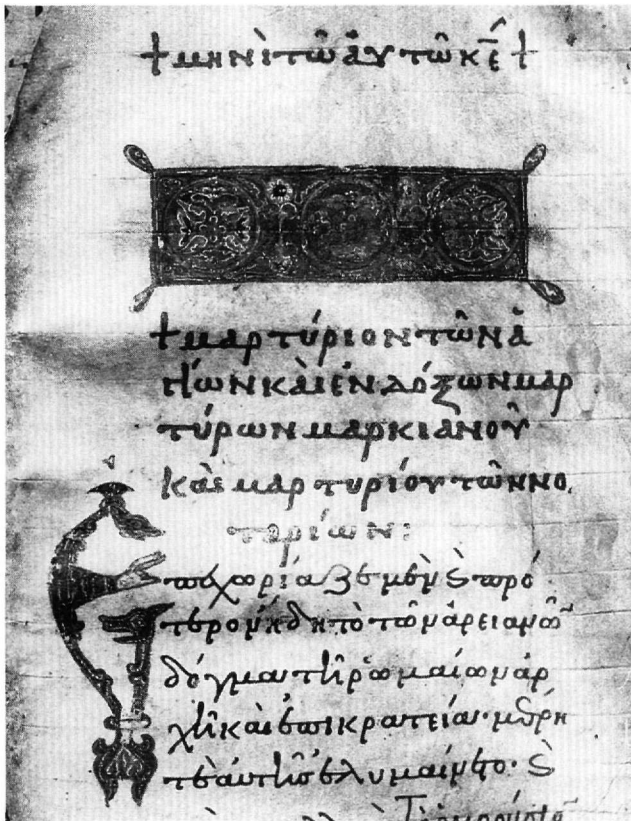 + μηνὶ τῶ ἀυτῶ κε +
+ μαρτύριον τῶν ἁ
γίων καὶ ἐνδόξων μαρ
τύρων μαρκιανοῦ
καὶ μαρτυρίου τῶν νο
ταρίων:
Επεχωρίαζε μὲν ϗ πρό
τερον ἤδη τὸ τῶν ἀρειανῶ
δόγμα τῆ ῥωμαίων ἀρ
χῆ καὶ ἐπικρατεία· μέρη
τὲ αὐτῆς ἐλυμαίνετο· ϗ